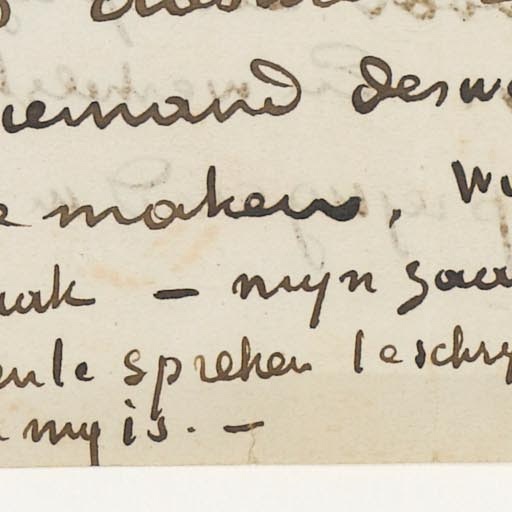 iemand desw
e maken, W
aak — mijn zaa
en le spreken leschry
my is. —